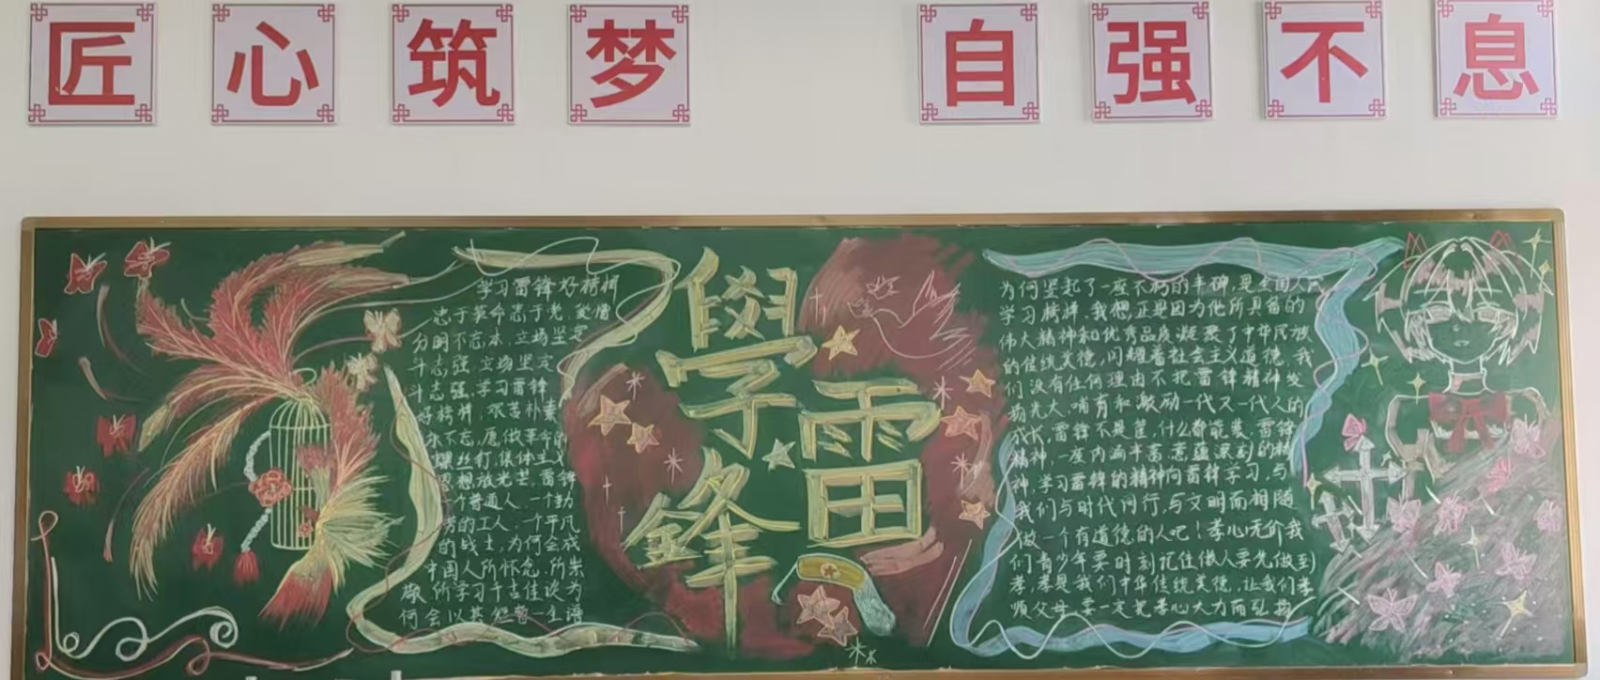 匠心筑梦 自强不息
学习雷锋好榜样
忠于革命忠于党,爱憎
分明不忘本,立场坚定
斗志强,立场坚定
斗志强,学习雷锋
好榜样,艰苦朴素
永不忘,愿做革命的
螺丝钉,集体主义
思想放光芒,雷锋
一个普通人,一个勤
劳的工人,一个平凡
的战士,为何会成
中国人所怀念,所崇
敬,所学习千古佳谈为
何会以其
學雷鋒
为何竖起了一座不朽的丰碑,是全国人民
学习榜样,我想,正是因为他所具备的
伟大精神和优秀品质凝聚了中华民族
的传统美德,闪耀着社会主义道德,我
们没有任何理由不把雷锋精神发
扬光大,哺育和激励一代又一代人的
成长,雷锋不是筐,什么都能装,雷锋
精神,一座内涵丰富意蕴深刻的精
神,学习雷锋的精神向雷锋学习,与
我们与时代同行,与文明而相随
做一个有道德的人吧!孝心无价我
们青少年要时刻记住做人要先做到
孝,孝是我们中华传统美德,让我们孝
顺父母,要一定把孝心大力而弘扬